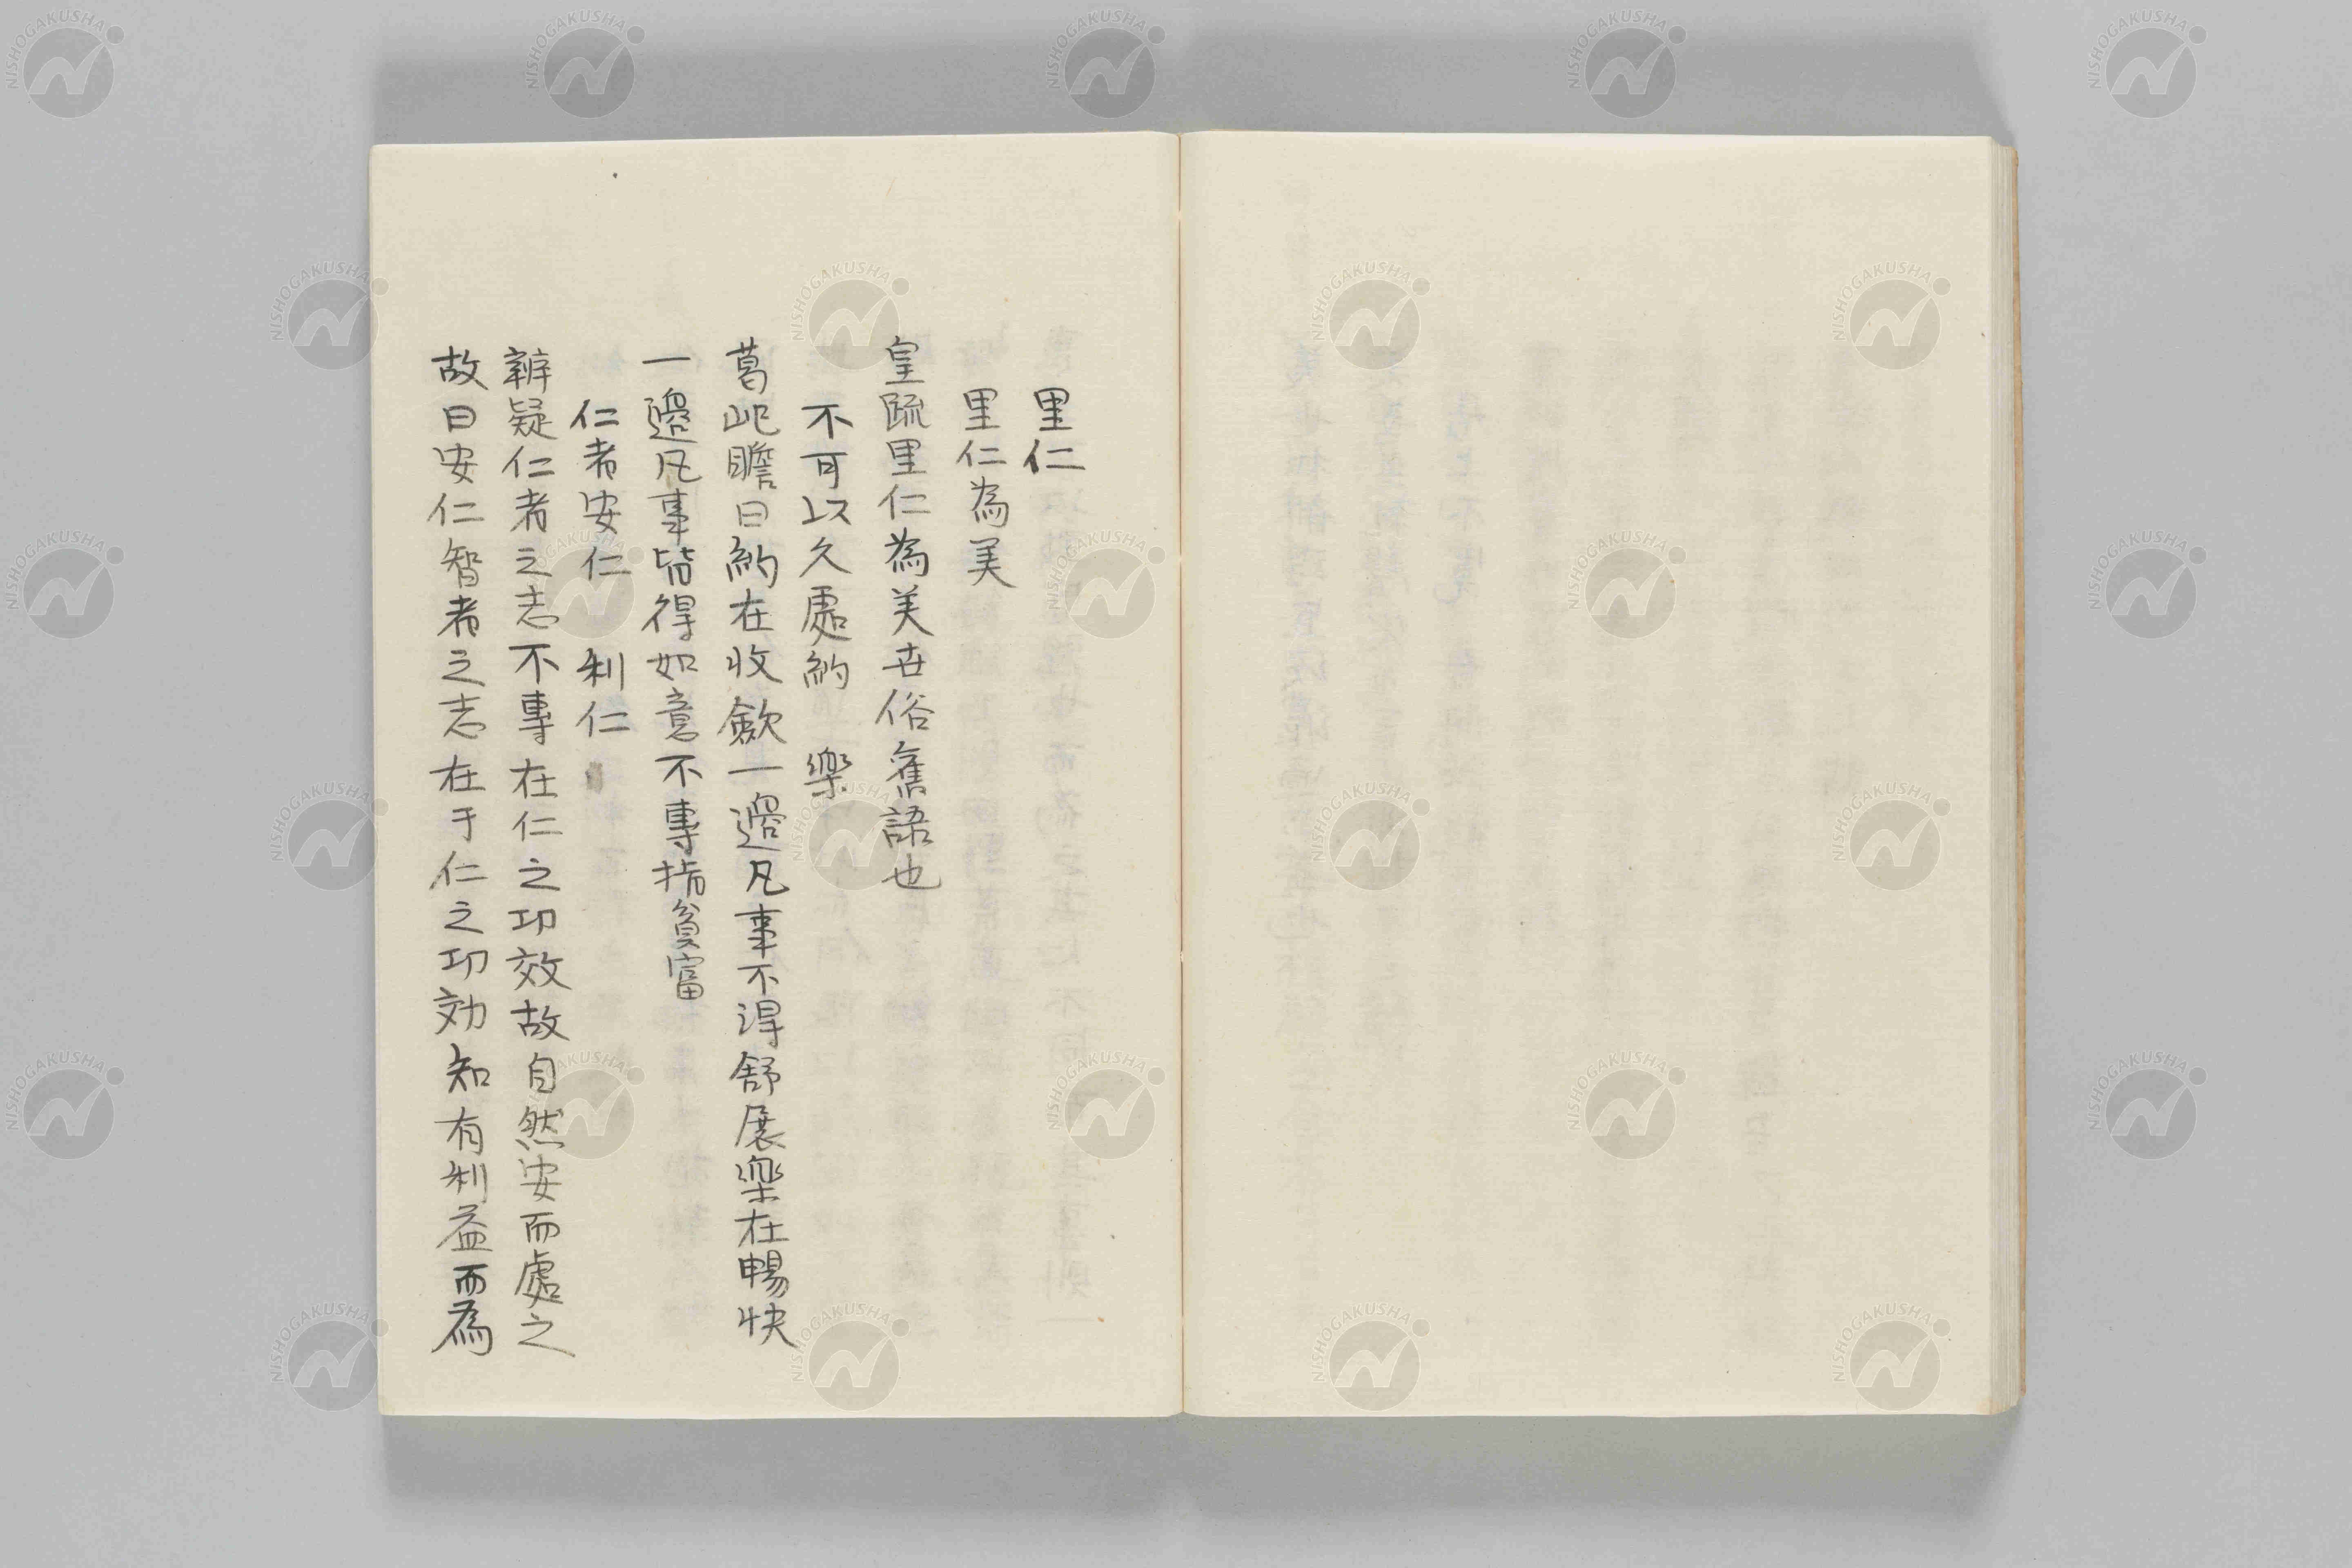 里仁
里仁為美
皇疏里仁為美古俗舊語也
不可以久處約　樂
葛屺瞻曰約在收斂一邊凡事不得舒展樂在暢快
一邊凡事皆得如意不專指貧富
仁者安仁　利仁
辨疑仁者之志不專在仁之功效故自然安而處之
故曰安仁智者之志在于仁之功効知有利益而為